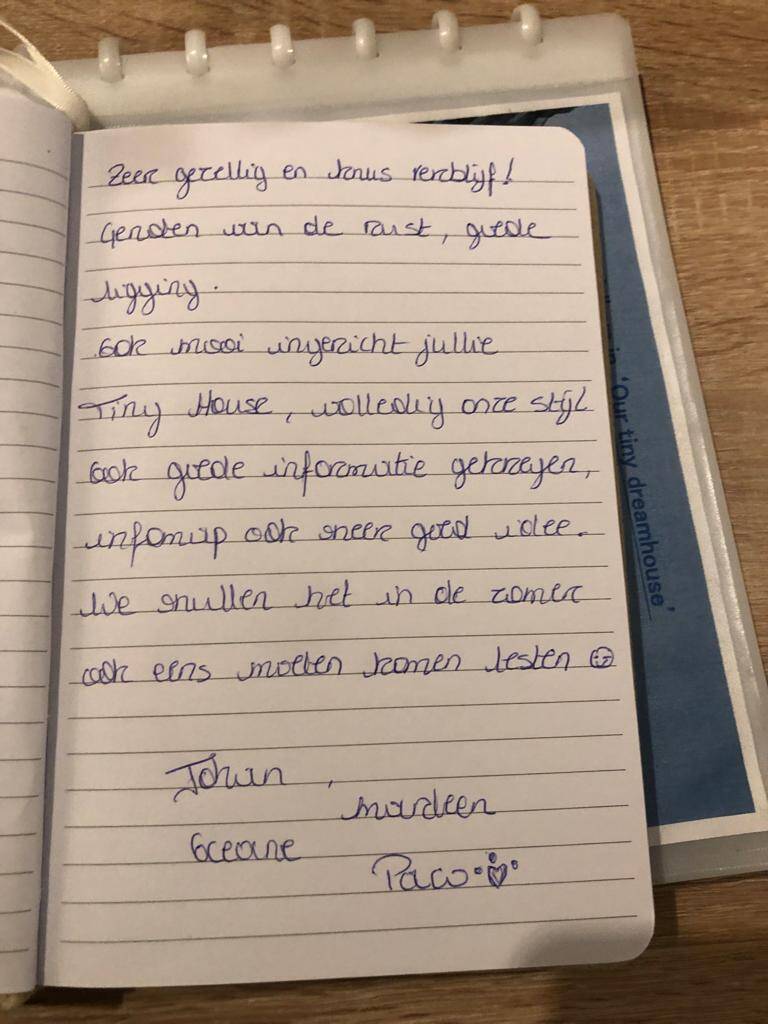 Zeer gezellig en knus verblijf!
Genoten van de rust, goede
ligging.
Ook mooi ingericht jullie
Tiny House, volledig onze stijl
Ook goede informatie gekregen,
infomap ook zeer goed idee.
We zullen het in de zomer
ook eens moeten komen testen ☺
Johan,
Marleen
Oceane
Paco
in 'Our tiny dreamhouse'